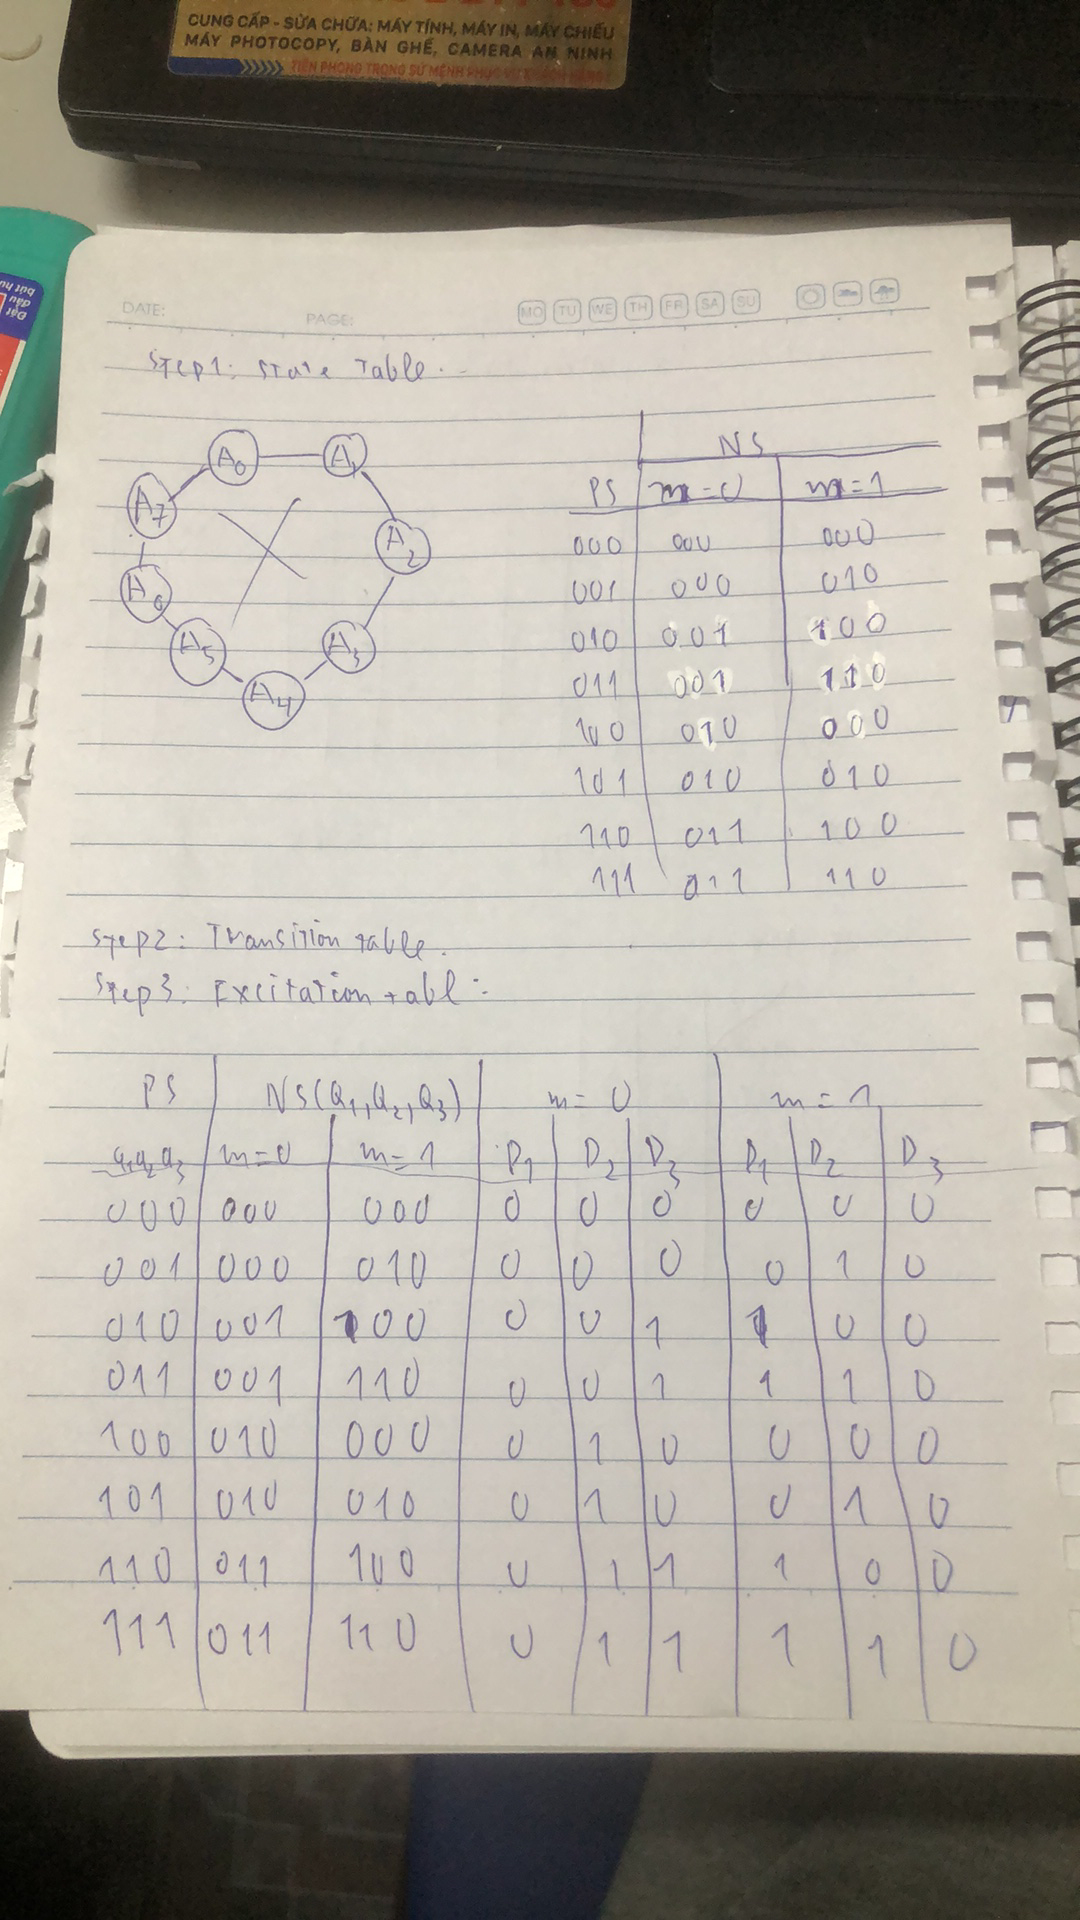 CUNG CẤP - SỬA CHỮA: MÁY TÍNH, MÁY IN, MÁY CHIẾU
MÁY PHOTOCOPY, BÀN GHẾ, CAMERA AN NINH
TIÊN PHONG TRONG SỨ MỆNH
DATE: PAGE: MO TU WE TH FR SA SU
Step1: State Table.
A0 A1
A7 A2
A6 A3
A5 A4
NS
PS m=0 m=1
000 000 000
001 000 010
010 001 100
011 001 110
100 010 000
101 010 010
110 011 100
111 011 110
Step2: Transition table.
Step3: Excitation tabl:
PS NS(Q1,Q2,Q3) m=0 m=1
q1q2q3 m=0 m=1 D1 D2 D3 D1 D2 D3
000 000 000 0 0 0 0 0 0
001 000 010 0 0 0 0 1 0
010 001 100 0 0 1 1 0 0
011 001 110 0 0 1 1 1 0
100 010 000 0 1 0 0 0 0
101 010 010 0 1 0 0 1 0
110 011 100 0 1 1 1 0 0
111 011 110 0 1 1 1 1 0